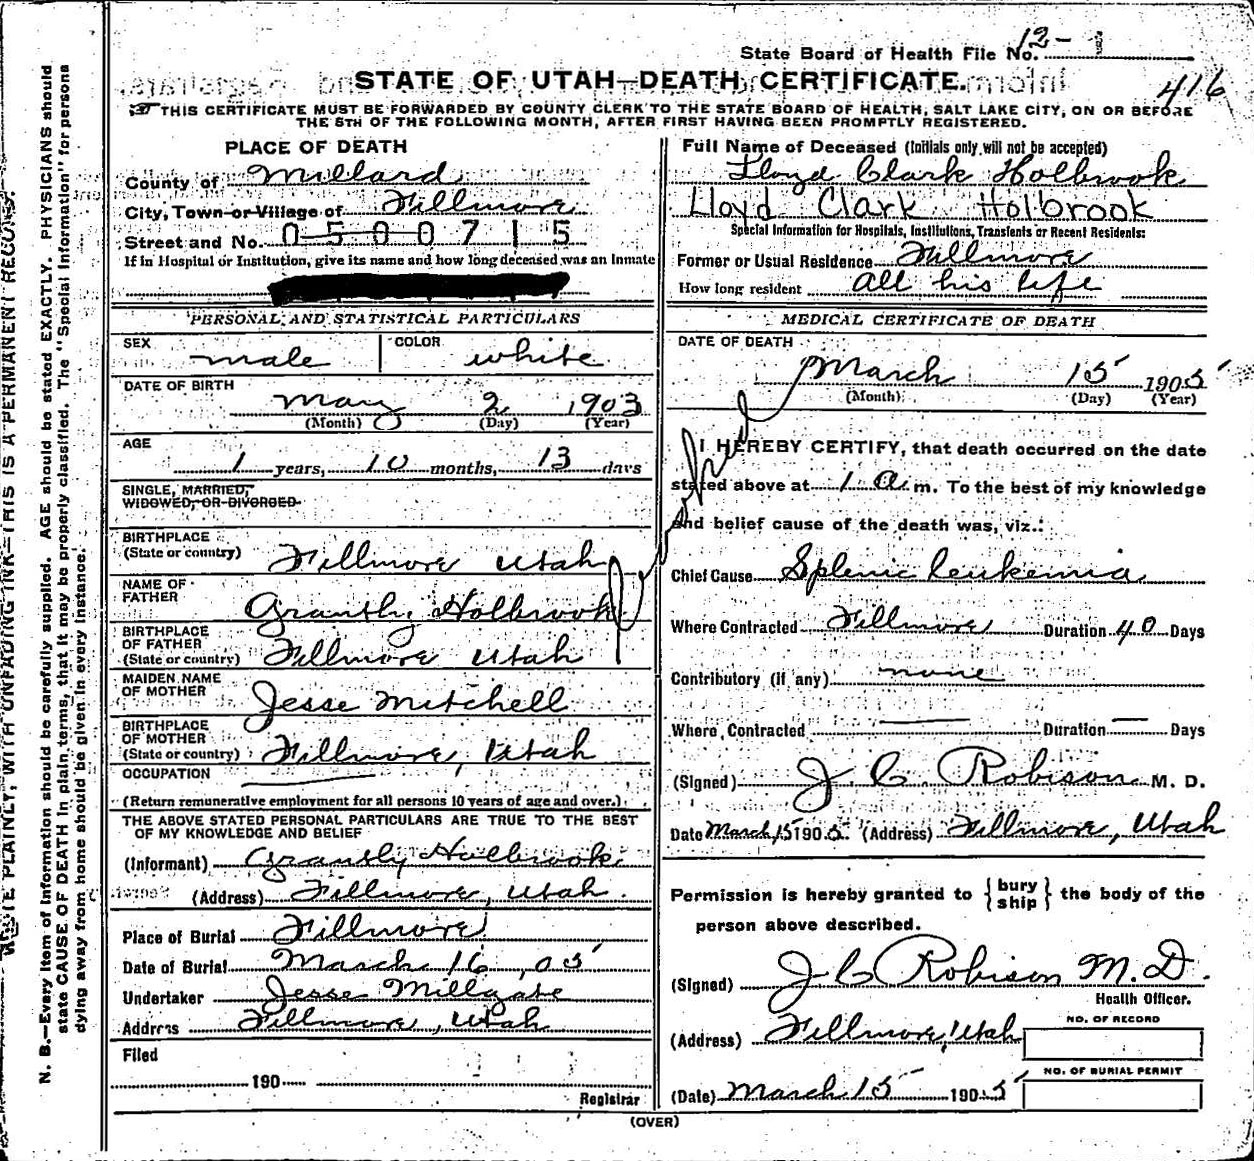 State Board of Health File No. 12-1
416
STATE OF UTAH—DEATH CERTIFICATE.
THIS CERTIFICATE MUST BE FORWARDED BY COUNTY CLERK TO THE STATE BOARD OF HEALTH, SALT LAKE CITY, ON OR BEFORE
THE 5TH OF THE FOLLOWING MONTH, AFTER FIRST HAVING BEEN PROMPTLY REGISTERED.
PLACE OF DEATH
County of Millard
City, Town or Village of Fillmore
Street and No. 0500715
If in Hospital or Institution, give its name and how long deceased was an Inmate
PERSONAL AND STATISTICAL PARTICULARS
SEX male COLOR white
DATE OF BIRTH
May 2 1903
(Month) (Day) (Year)
AGE
1 years, 10 months, 13 days
SINGLE, MARRIED,
WIDOWED, OR DIVORCED
BIRTHPLACE
(State or country) Fillmore Utah
NAME OF
FATHER Granthy Holbrook
BIRTHPLACE
OF FATHER
(State or country) Fillmore Utah
MAIDEN NAME
OF MOTHER Jesse Mitchell
BIRTHPLACE
OF MOTHER
(State or country) Fillmore, Utah
OCCUPATION
(Return remunerative employment for all persons 10 years of age and over.)
THE ABOVE STATED PERSONAL PARTICULARS ARE TRUE TO THE BEST
OF MY KNOWLEDGE AND BELIEF
(Informant) Grantly Holbrook
(Address) Fillmore, Utah.
Place of Burial Fillmore
Date of Burial March 16, 05
Undertaker Jesse Millgate
Address Fillmore, Utah
Filed
190
Registrar
Full Name of Deceased (Initials only will not be accepted)
Lloyd Clark Holbrook
Lloyd Clark Holbrook
Special Information for Hospitals, Institutions, Transients or Recent Residents:
Former or Usual Residence Fillmore
How long resident all his life
MEDICAL CERTIFICATE OF DEATH
DATE OF DEATH
March 15 1905
(Month) (Day) (Year)
I HEREBY CERTIFY, that death occurred on the date
stated above at 1 a m. To the best of my knowledge
and belief cause of the death was, viz.:
Chief Cause Splenic leukemia
Where Contracted Fillmore Duration 40 Days
Contributory (if any) none
Where Contracted — Duration — Days
(Signed) J C. Robison M. D.
Date March 15 1905. (Address) Fillmore, Utah
Permission is hereby granted to { bury ship } the body of the
person above described.
(Signed) J C Robison M.D.
Health Officer.
(Address) Fillmore, Utah
NO. OF RECORD
NO. OF BURIAL PERMIT
(Date) March 15 1905
(OVER)
WRITE PLAINLY, WITH UNFADING INK—THIS IS A PERMANENT RECORD.
N. B.—Every item of information should be carefully supplied. AGE should be stated EXACTLY. PHYSICIANS should
state CAUSE OF DEATH in plain terms, that it may be properly classified. The "Special Information" for persons
dying away from home should be given in every instance.